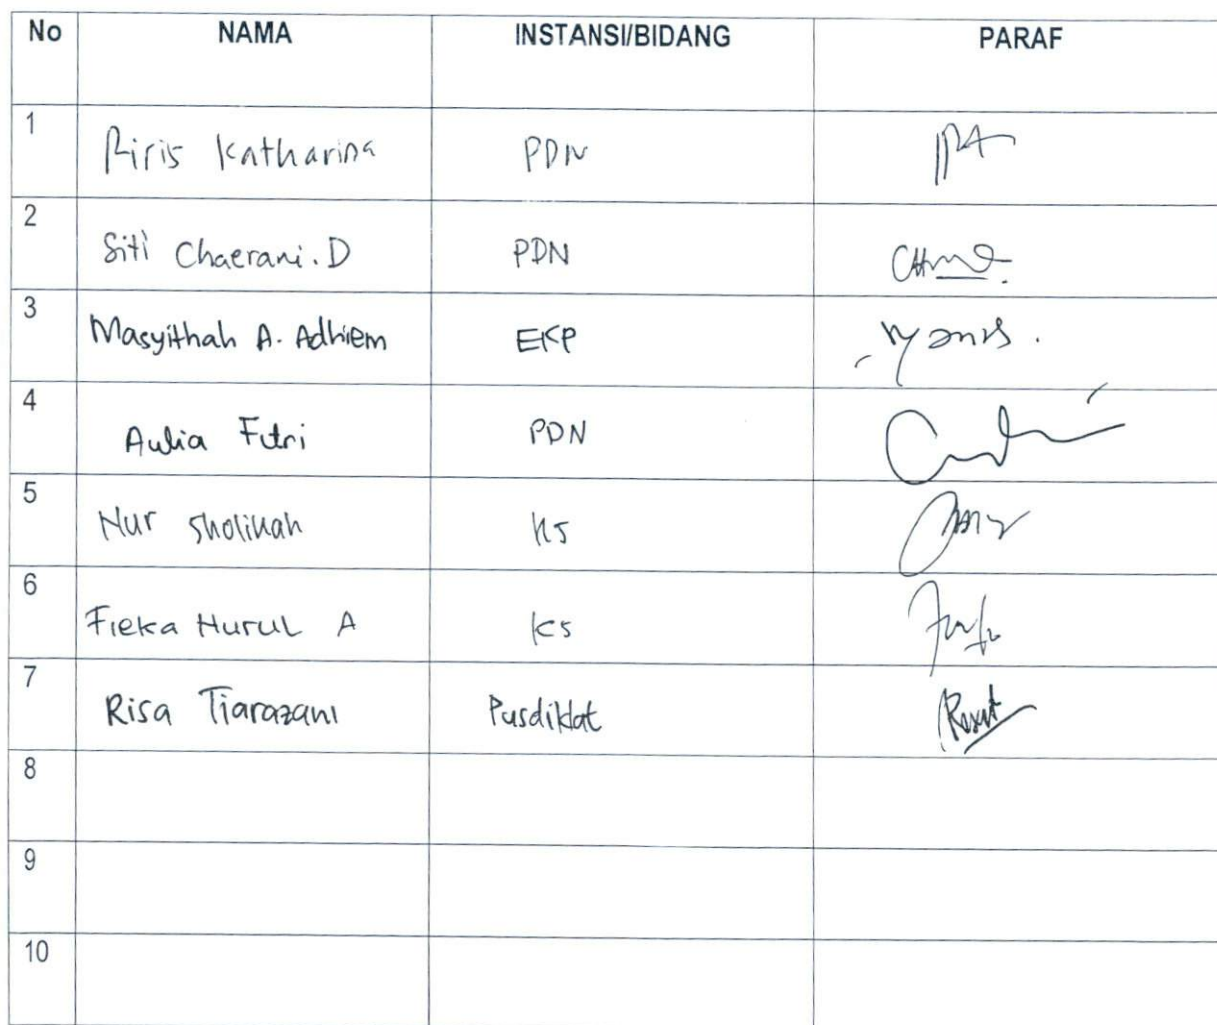 No NAMA INSTANSI/BIDANG PARAF
1 Riris Katharina PDN
2 Siti Chaerani. D PDN
3 Masyithah A. Adhiem EKP
4 Aulia Futri PDN
5 Nur Sholikah KS
6 Fieka Nurul A KS
7 Risa Tiarazani Pusdiklat
8
9
10